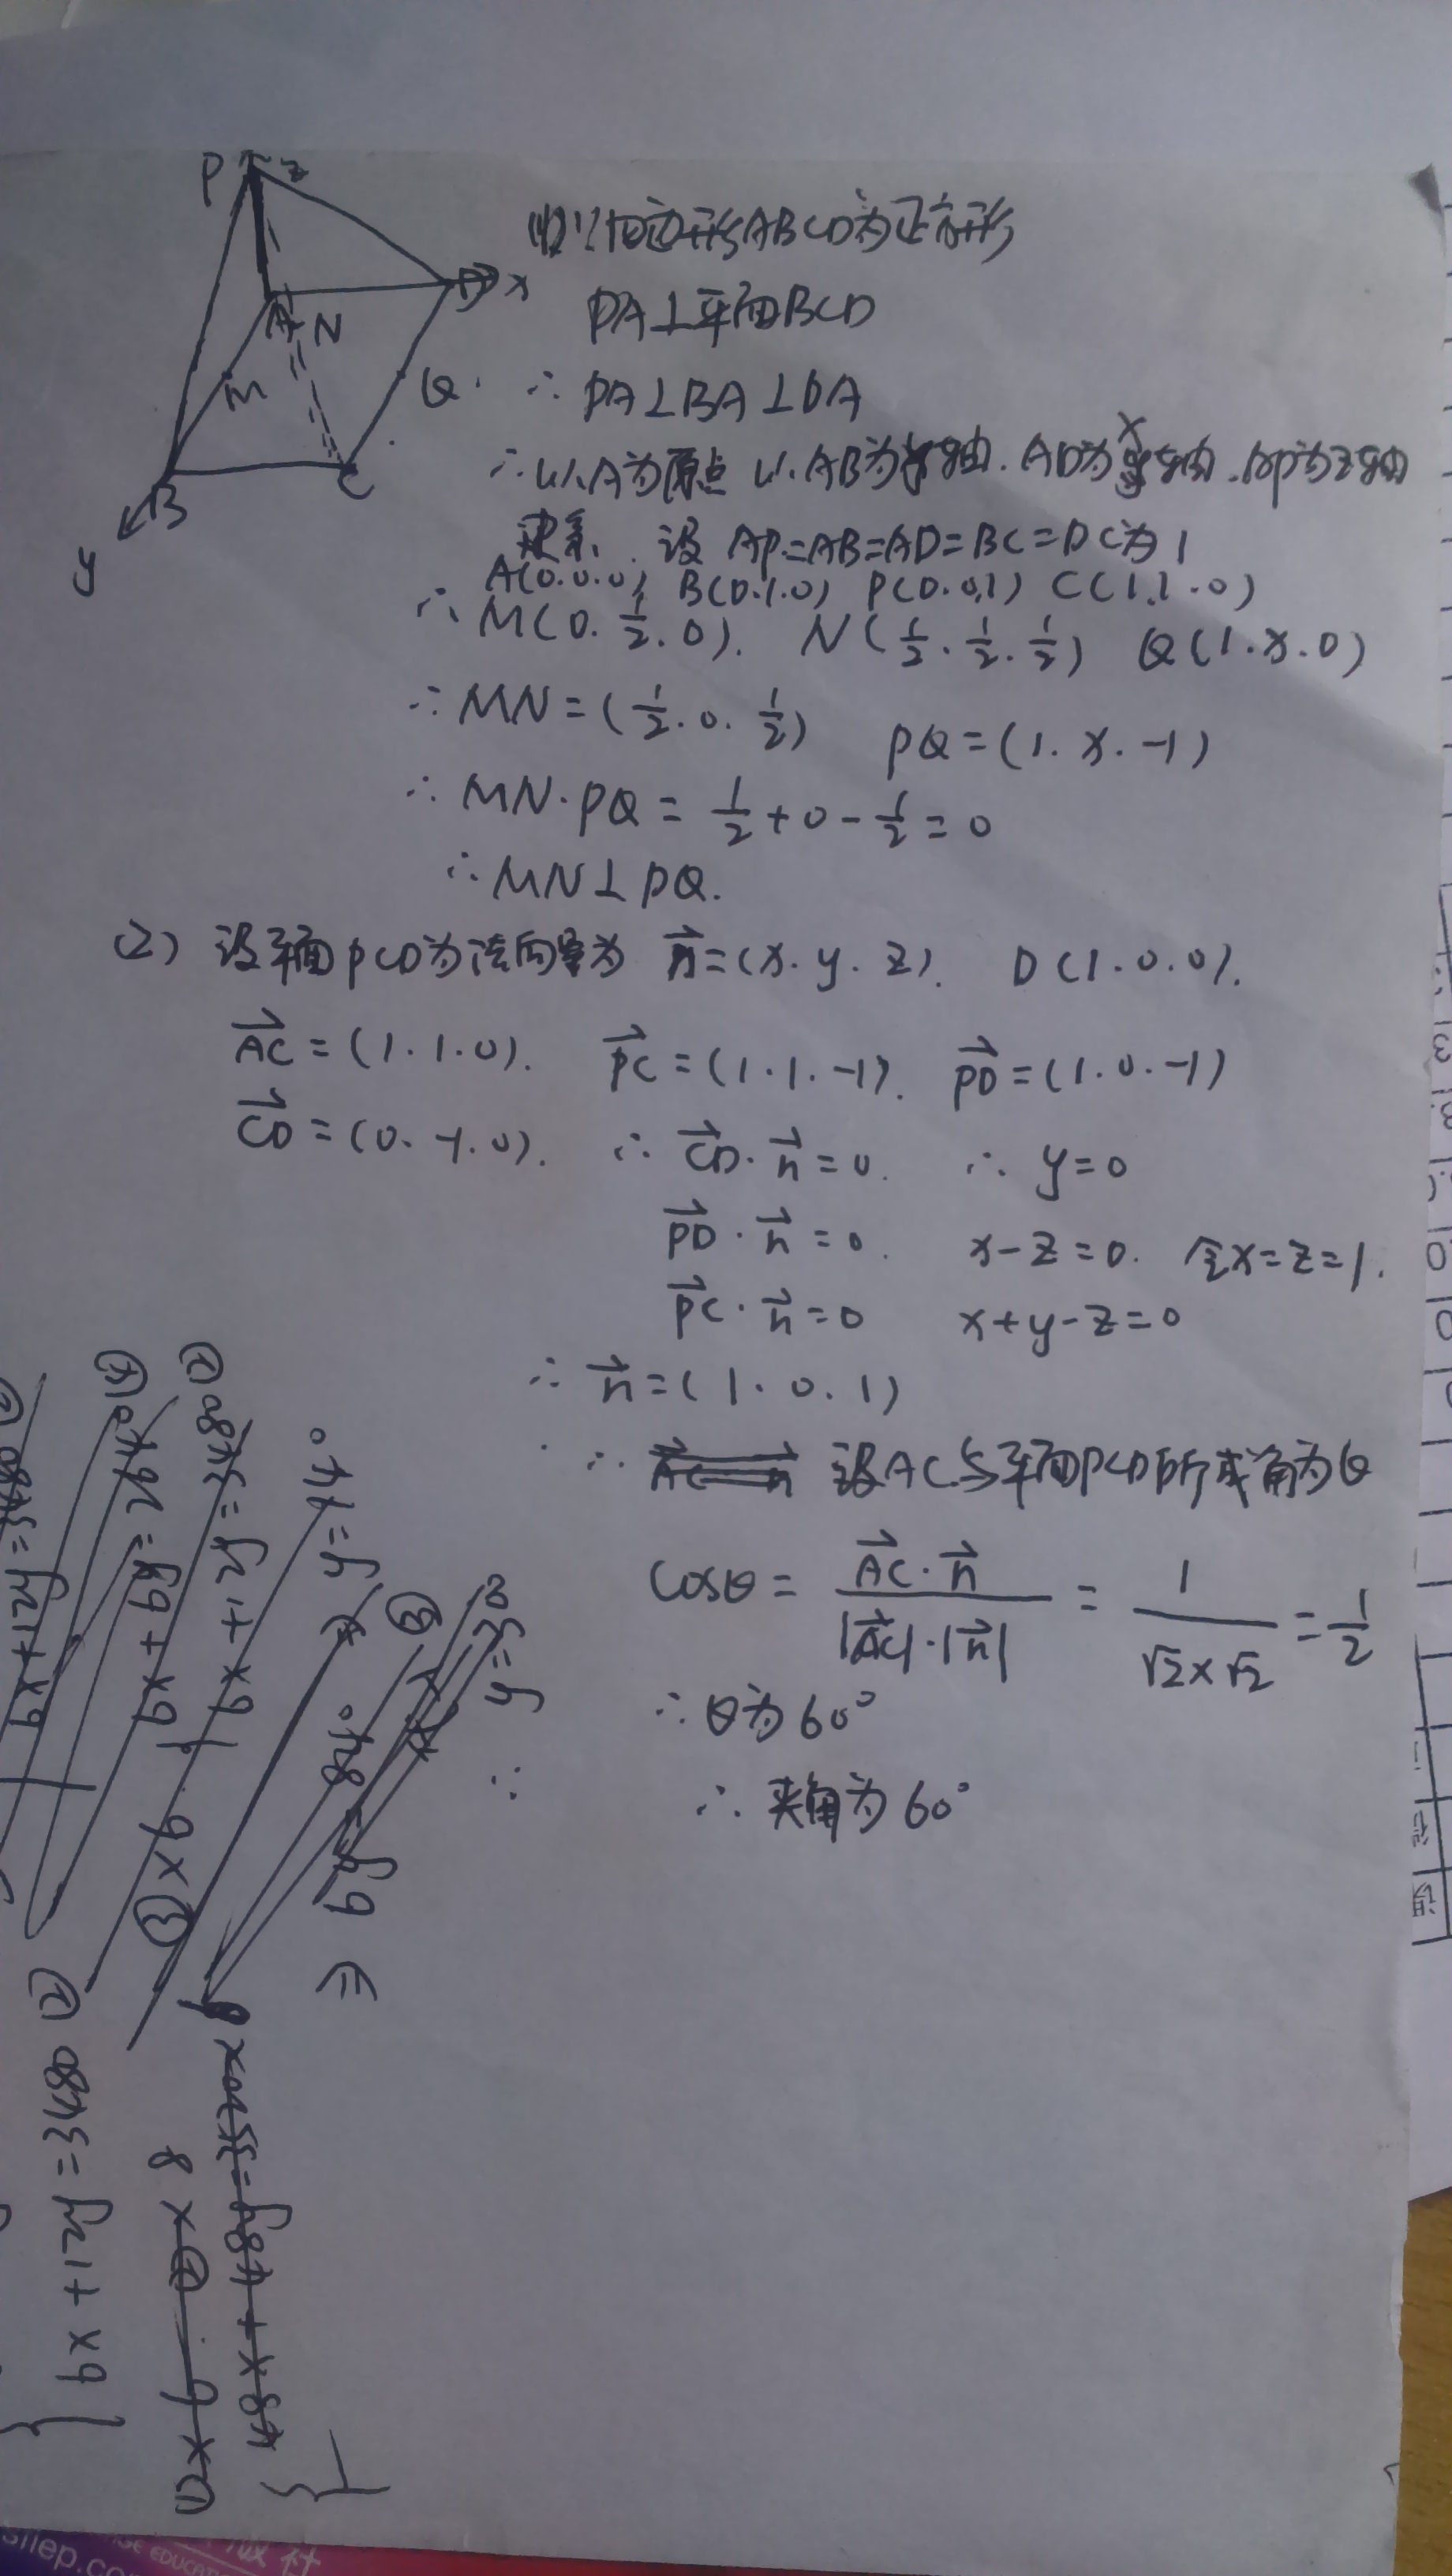 P
z
D
x
A
N
M
Q
B
C
y
(1)∵四边形ABCD为正方形
PA⊥平面BCD
∴ PA⊥BA⊥DA
∴以A为原点 以AB为y轴.AD为x轴.AP为z轴
建系. 设 AP=AB=AD=BC=DC为1
A(0.0.0) B(0.1.0) P(0.0.1) C(1.1.0)
∴ M(0.1/2.0). N(1/2.1/2.1/2) Q(1.x.0)
∴ MN=(1/2.0.1/2) PQ=(1.x.-1)
∴ MN·PQ=1/2+0-1/2=0
∴MN⊥PQ.
(2) 设平面PCD为法向量为 n=(x.y.z). D(1.0.0).
AC=(1.1.0). PC=(1.1.-1). PD=(1.0.-1)
CD=(0.-1.0). ∴ CD·n=0. ∴ y=0
PD·n=0. x-z=0. 令x=z=1.
PC·n=0 x+y-z=0
∴ n=(1.0.1)
∴ AC n 设AC与平面PCD所成角为θ
cosθ= AC·n/|AC|·|n| = 1/√2×√2 = 1/2
∴θ为60°
∴ 夹角为60°
9x+12y=3480 ②